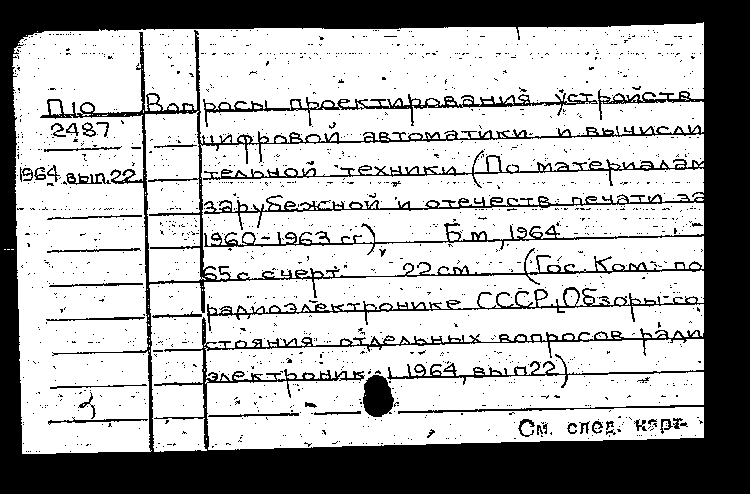 П10 Вопросы проектирования устройств
2487 цифровой автоматики и вычисли
1964 вып.22 тельной техники (По материалам
зарубежной и отечеств. печати за
1960-1963 гг). Б.м., 1964
65 с. с черт. 22 см. (Гос. Ком. по
радиоэлектронике СССР, Обзоры со
стояния отдельных вопросов ради
электроник 1964, вып 22)
См. след. карт.